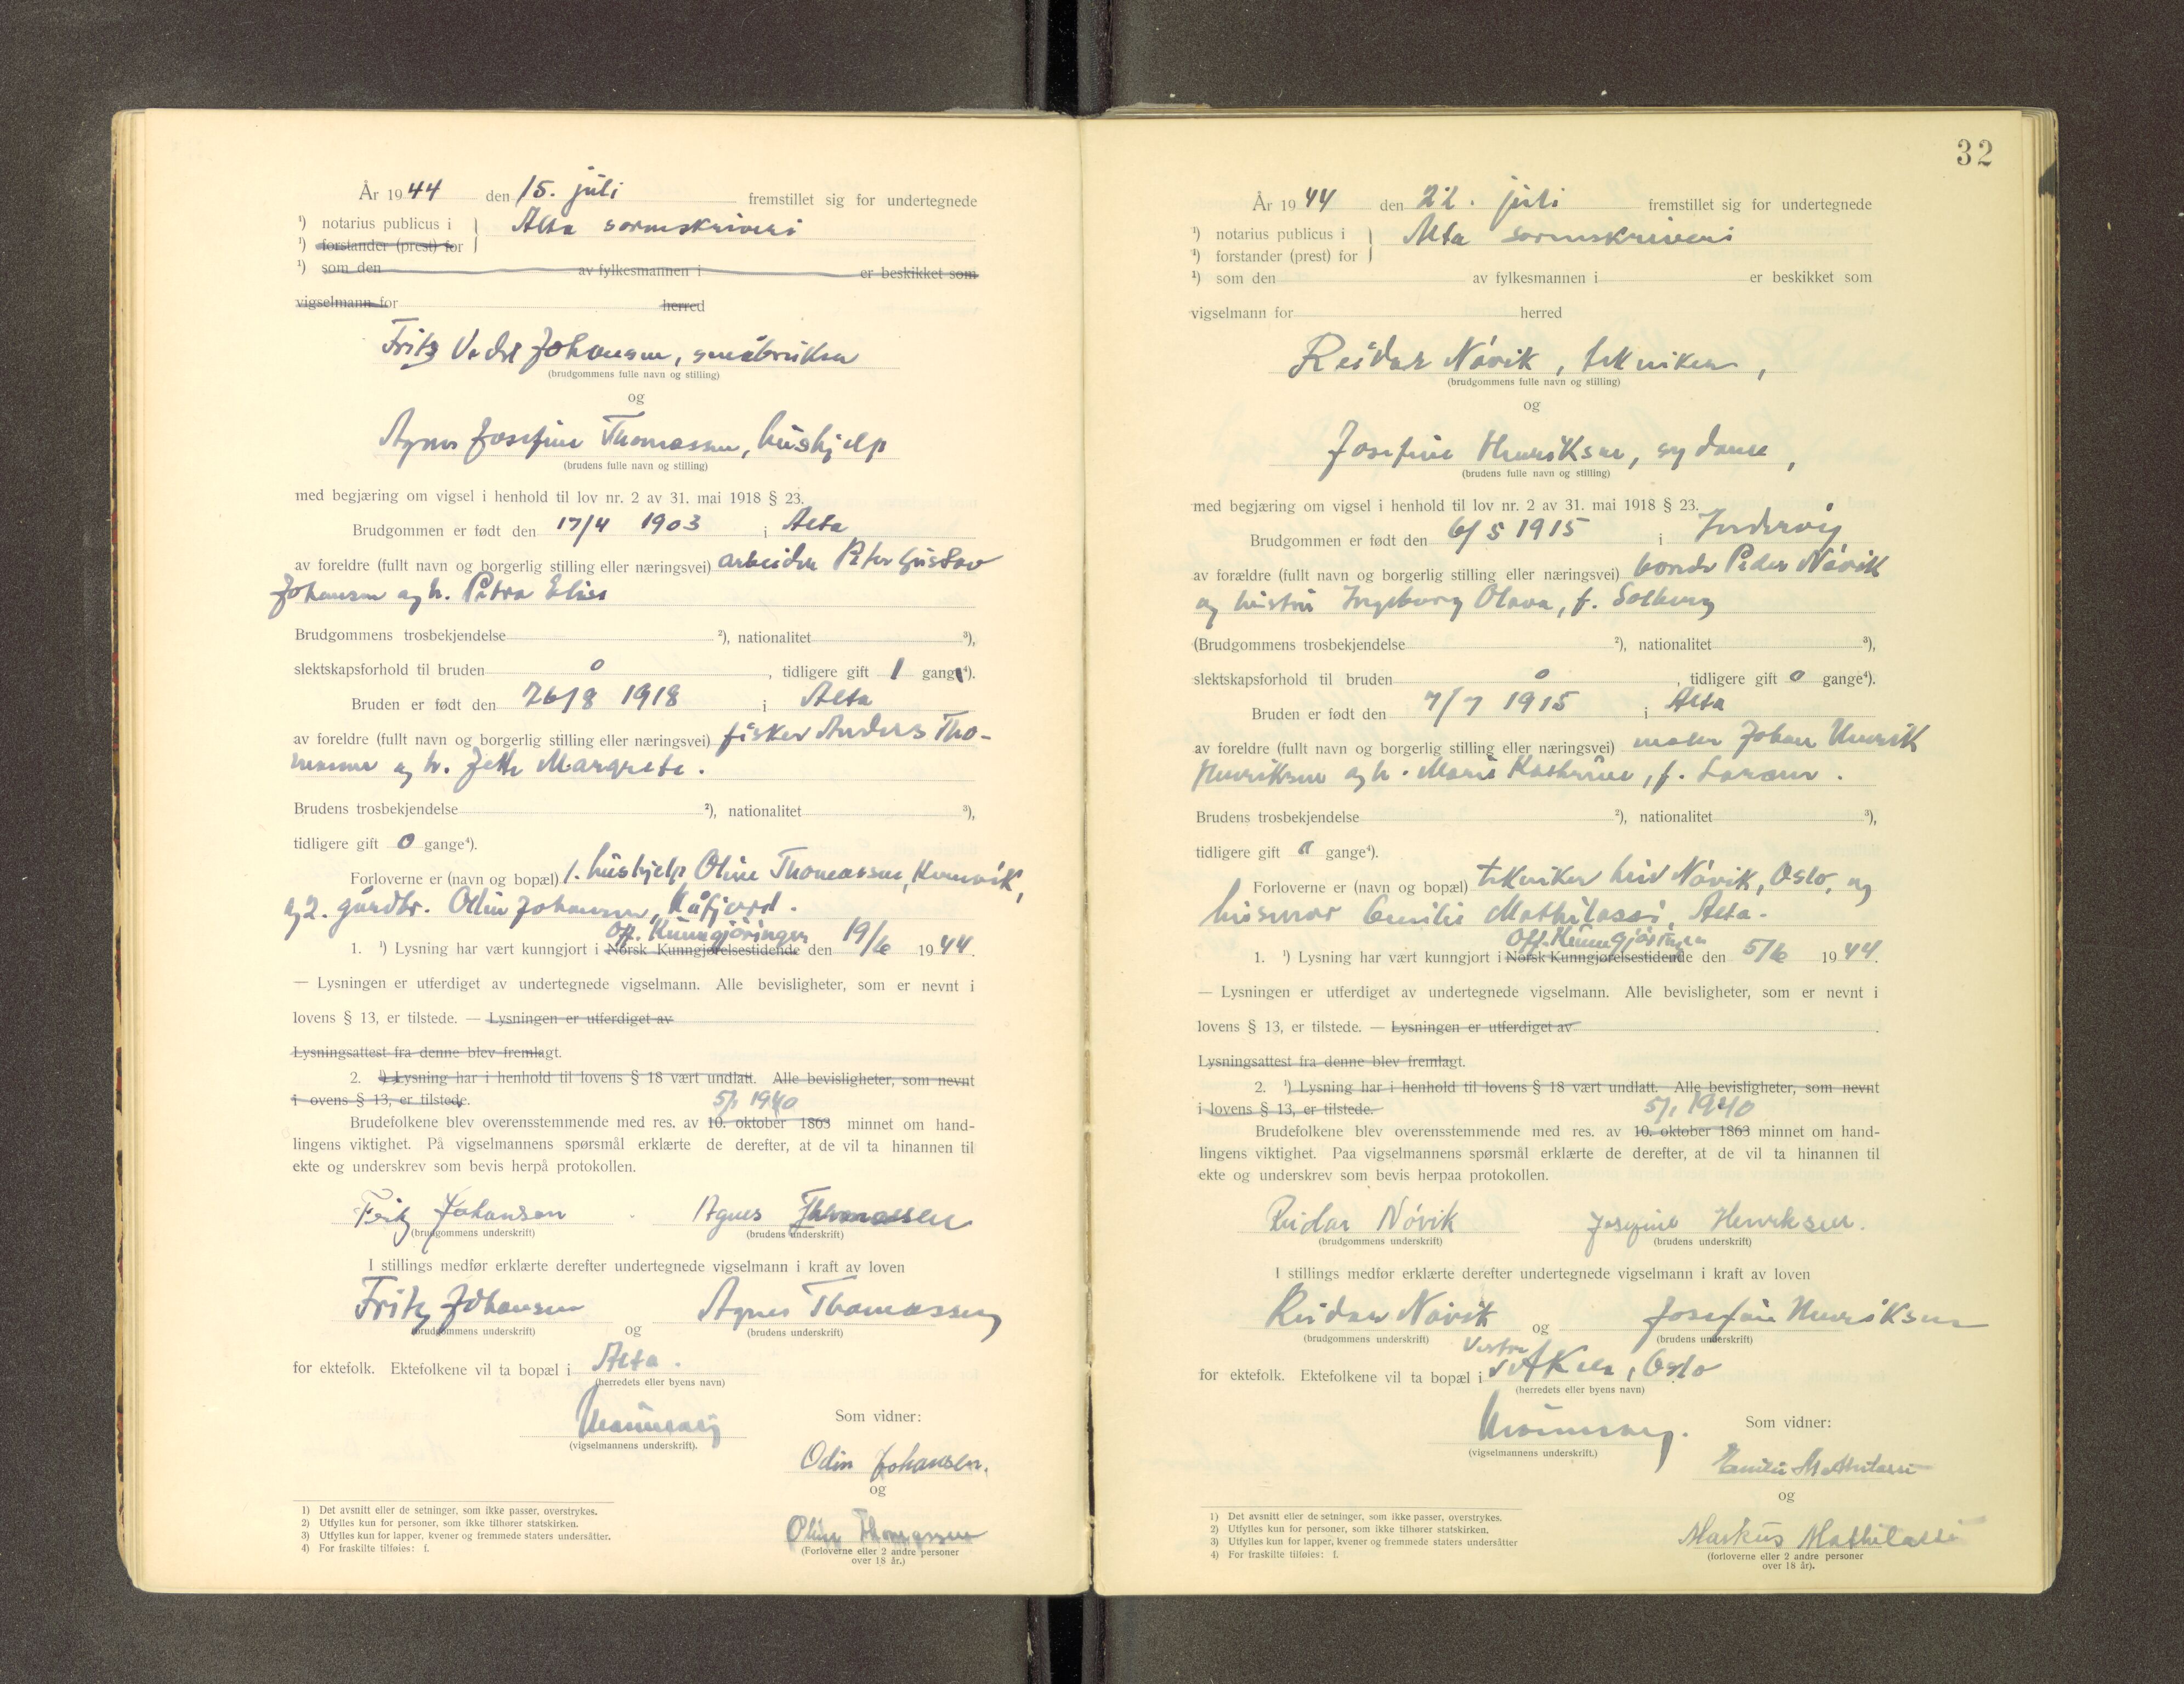 År 1944 den 15. juli fremstillet sig for undertegnede
¹) notarius publicus i } Alta sorenskriveri
¹) forstander (prest) for
¹) som den av fylkesmannen i er beskikket som
vigselmann for herred
Fritz Johansen, småbruker
(brudgommens fulle navn og stilling)
og
Agnes Josefine Thomassen, hushjelp
(brudens fulle navn og stilling)
med begjæring om vigsel i henhold til lov nr. 2 av 31. mai 1918 § 23.
Brudgommen er født den 17/4 1903 i Alta
av foreldre (fullt navn og borgerlig stilling eller næringsvei) arbeider Peter Gustav
Johansen og h. Petra Elise
Brudgommens trosbekjendelse ²), nationalitet ³),
slektskapsforhold til bruden 0 , tidligere gift 1 gang ⁴).
Bruden er født den 26/8 1918 i Alta
av foreldre (fullt navn og borgerlig stilling eller næringsvei) fisker Anders Tho-
massen og h. Margrete.
Brudens trosbekjendelse ²), nationalitet ³),
tidligere gift 0 gange⁴).
Forloverne er (navn og bopæl) 1. hushjelp Oline Thomassen, Kvenvik,
og 2. gårdbr. Odin Johansen, Kåfjord.
Off. Kunngjøringer
1. ¹) Lysning har vært kunngjort i Norsk Kunngjørelsestidende den 19/6 1944.
— Lysningen er utferdiget av undertegnede vigselmann. Alle bevisligheter, som er nevnt i
lovens § 13, er tilstede. — Lysningen er utferdiget av
Lysningsattest fra denne blev fremlagt.
2. ¹) Lysning har i henhold til lovens § 18 vært undlatt. Alle bevisligheter, som nevnt
i ovens § 13, er tilstede.
5/1 1940
Brudefolkene blev overensstemmende med res. av 10. oktober 1863 minnet om hand-
lingens viktighet. På vigselmannens spørsmål erklærte de derefter, at de vil ta hinannen til
ekte og underskrev som bevis herpå protokollen.
Fritz Johansen Agnes Thomassen
(brudgommens underskrift) (brudens underskrift)
I stillings medfør erklærte derefter undertegnede vigselmann i kraft av loven
Fritz Johansen og Agnes Thomassen
(brudgommens underskrift) (brudens underskrift)
for ektefolk. Ektefolkene vil ta bopæl i Alta.
(herredets eller byens navn)
(vigselmannens underskrift).
Som vidner:
Odin Johansen.
og
Oline Thomassen
(Forloverne eller 2 andre personer
over 18 år.)
1) Det avsnitt eller de setninger, som ikke passer, overstrykes.
2) Utfylles kun for personer, som ikke tilhører statskirken.
3) Utfylles kun for lapper, kvener og fremmede staters undersåtter.
4) For fraskilte tilføies: f.
32
År 1944 den 22. juli fremstillet sig for undertegnede
¹) notarius publicus i } Alta sorenskriveri
¹) forstander (prest) for
¹) som den av fylkesmannen i er beskikket som
vigselmann for herred
Reidar Nóvik, tekniker,
(brudgommens fulle navn og stilling)
og
Josefine Henriksen, sydame,
(brudens fulle navn og stilling)
med begjæring om vigsel i henhold til lov nr. 2 av 31. mai 1918 § 23.
Brudgommen er født den 6/5 1915 i
av forældre (fullt navn og borgerlig stilling eller næringsvei) bonde Peder Nóvik
og hustru Ingeborg Olava, f. Solberg
(Brudgommens trosbekjendelse ²), nationalitet ³),
slektskapsforhold til bruden 0 , tidligere gift 0 gange⁴).
Bruden er født den 7/7 1915 i Alta
av foreldre (fullt navn og borgerlig stilling eller næringsvei) maler Johan Henrik
Henriksen og h. Marie Kathrine, f. Larsen.
Brudens trosbekjendelse ²), nationalitet ³),
tidligere gift 0 gange⁴).
Forloverne er (navn og bopæl) tekniker Nóvik, Oslo, og
husmor Emilie Mathilassi, Alta.
Off. Kunngjøringer
1. ¹) Lysning har vært kunngjort i Norsk Kunngjørelsestidende den 5/6 1944.
— Lysningen er utferdiget av undertegnede vigselmann. Alle bevisligheter, som er nevnt i
lovens § 13, er tilstede. — Lysningen er utferdiget av .
Lysningsattest fra denne blev fremlagt.
2. ¹) Lysning har i henhold til lovens § 18 vært undlatt. Alle bevisligheter, som nevnt
i lovens § 13, er tilstede.
5/1 1940
Brudefolkene blev overensstemmende med res. av 10. oktober 1863 minnet om hand-
lingens viktighet. Paa vigselmannens spørsmål erklærte de derefter, at de vil ta hinannen til
ekte og underskrev som bevis herpaa protokollen.
Reidar Nóvik Josefine Henriksen.
(brudgommens underskrift) (brudens underskrift)
I stillings medfør erklærte derefter undertegnede vigselmann i kraft av loven
Reidar Nóvik og Josefine Henriksen
(brudgommens underskrift) (brudens underskrift)
Vestre
for ektefolk. Ektefolkene vil ta bopæl i Aker, Oslo
(herredets eller byens navn)
(vigselmannens underskrift.)
Som vidner:
Emilie Mathilassi
og
Markus Mathilassi
(forloverne eller 2 andre personer
over 18 år).
1) Det avsnitt eller de setninger, som ikke passer, overstrykes.
2) Utfylles kun for personer, som ikke tilhører statskirken.
3) Utfylles kun for lapper, kvener og fremmede staters undersåtter
4) For fraskilte tilføies: f.